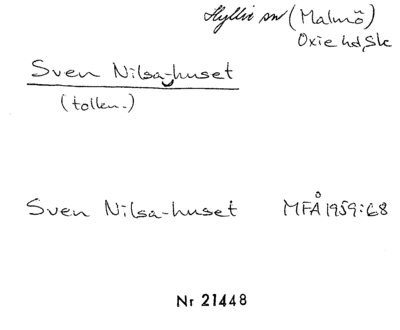 Hyllie sn (Malmö)
Oxie hd, Sk
Sven Nilsa-huset
(tolkn.)
Sven Nilsa-huset MFÅ 1959:68
Nr 21448